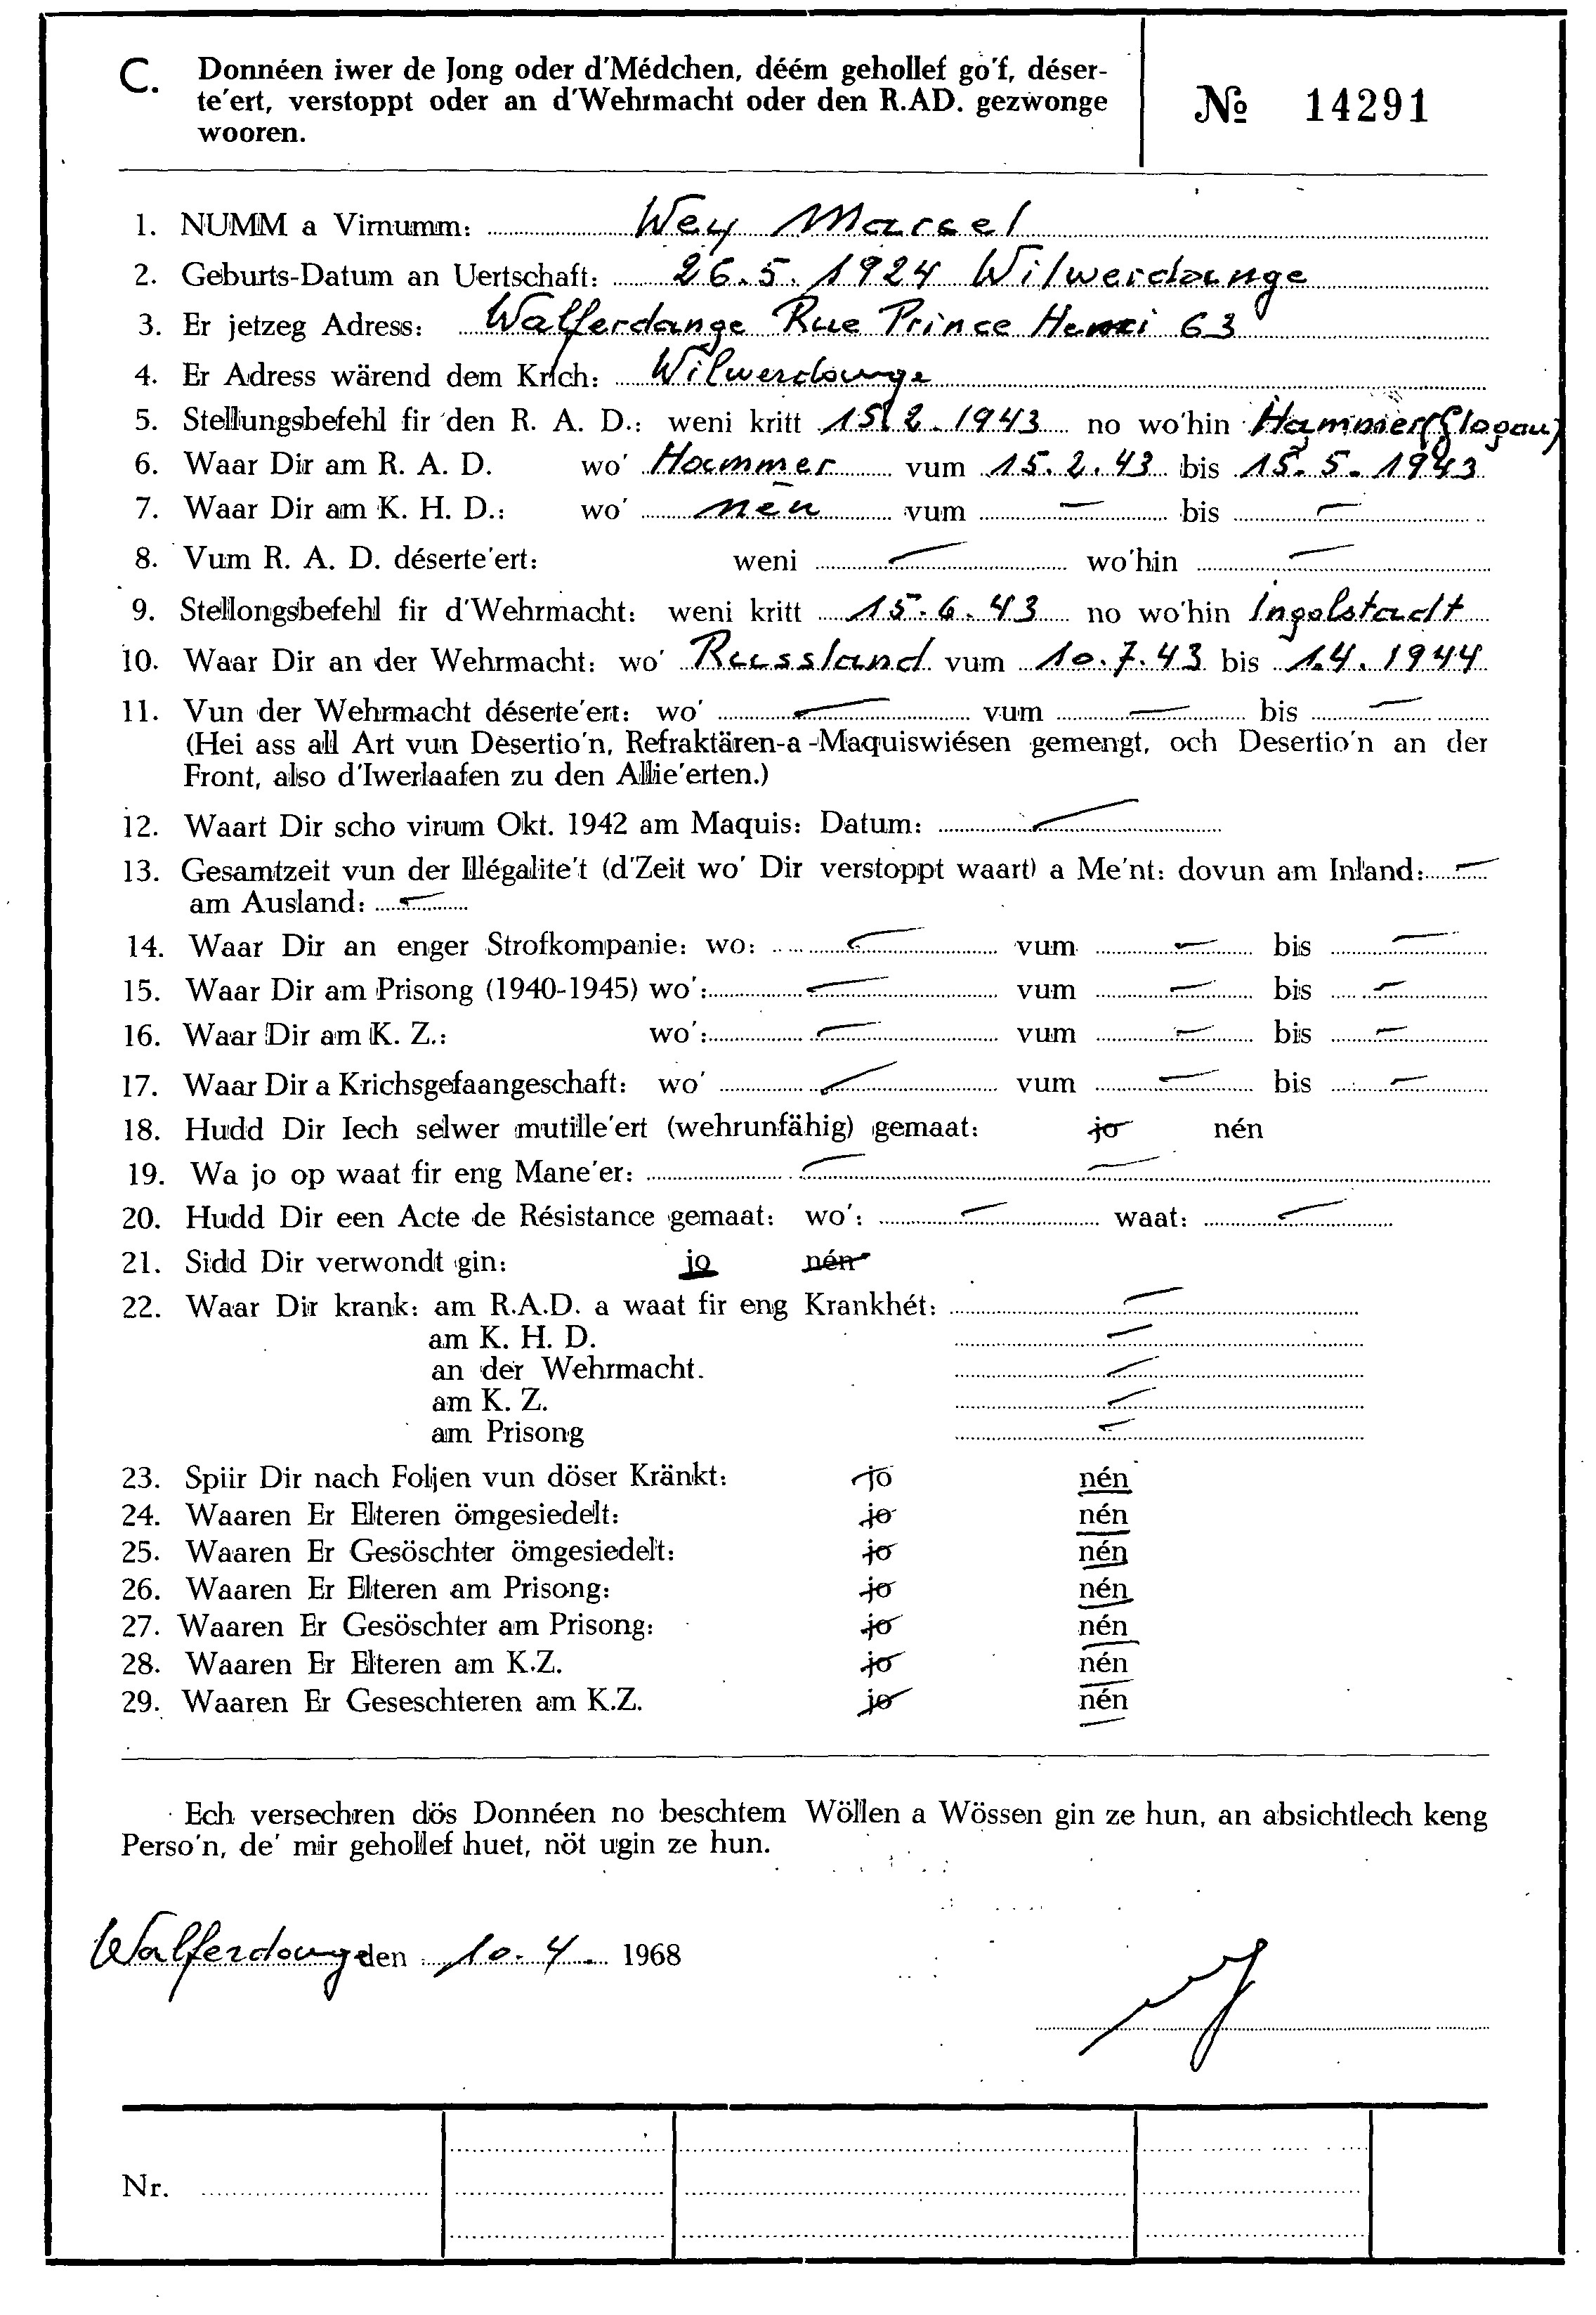 C. Donnéen iwer de Jong oder d'Médchen, déém gehollef go'f, déser-
te'ert, verstoppt oder an d'Wehrmacht oder den R.AD. gezwonge
wooren.
№ 14291
1. NUMM a Virnumm: Wey Marcel
2. Geburts-Datum an Uertschaft: 26.5.1924 Wilwerdange
3. Er jetzeg Adress: Walferdange Rue Prince Henri 63
4. Er Adress wärend dem Krich: Wilwerdange
5. Stellungsbefehl fir den R. A. D.: weni kritt 15.2.1943 no wo'hin Hammer (Glogau)
6. Waar Dir am R. A. D. wo' Hammer vum 15.2.43 bis 15.5.1943
7. Waar Dir am K. H. D.: wo' nēn vum — bis —
8. Vum R. A. D. déserte'ert: weni — wo'hin —
9. Stellongsbefehl fir d'Wehrmacht: weni kritt 15.6.43 no wo'hin Ingolstadt
10. Waar Dir an der Wehrmacht: wo' Russland vum 10.7.43 bis 1.4.1944
11. Vun der Wehrmacht déserte'ert: wo' — vum — bis —
(Hei ass all Art vun Dèsertio'n, Refraktären-a-Maquiswiésen gemengt, och Desertio'n an der
Front, also d'Iwerlaafen zu den Allie'erten.)
12. Waart Dir scho virum Okt. 1942 am Maquis: Datum: —
13. Gesamtzeit vun der Illégalite't (d'Zeit wo' Dir verstoppt waart) a Me'nt: dovun am Inland: —
am Ausland: —
14. Waar Dir an enger Strofkompanie: wo: — vum — bis —
15. Waar Dir am Prisong (1940-1945) wo': — vum — bis —
16. Waar Dir am K. Z.: wo': — vum — bis —
17. Waar Dir a Krichsgefaangeschaft: wo' — vum — bis —
18. Hudd Dir Iech selwer mutille'ert (wehrunfähig) gemaat: jo nén
19. Wa jo op waat fir eng Mane'er: — —
20. Hudd Dir een Acte de Résistance gemaat: wo': — waat: —
21. Sidd Dir verwondt gin: jo nén
22. Waar Dir krank: am R.A.D. a waat fir eng Krankhét: —
am K. H. D. —
an der Wehrmacht. —
am K. Z. —
am Prisong —
23. Spiir Dir nach Foljen vun döser Kränkt: jo nén
24. Waaren Er Elteren ömgesiedelt: jo nén
25. Waaren Er Gesöschter ömgesiedelt: jo nén
26. Waaren Er Elteren am Prisong: jo nén
27. Waaren Er Gesöschter am Prisong: jo nén
28. Waaren Er Elteren am K.Z. jo nén
29. Waaren Er Geseschteren am K.Z. jo nén
Ech versechren dös Donnéen no beschtem Wöllen a Wössen gin ze hun, an absichtlech keng
Perso'n, de' mir gehollef huet, nöt ugin ze hun.
Walferdange den 10.4. 1968
Nr.